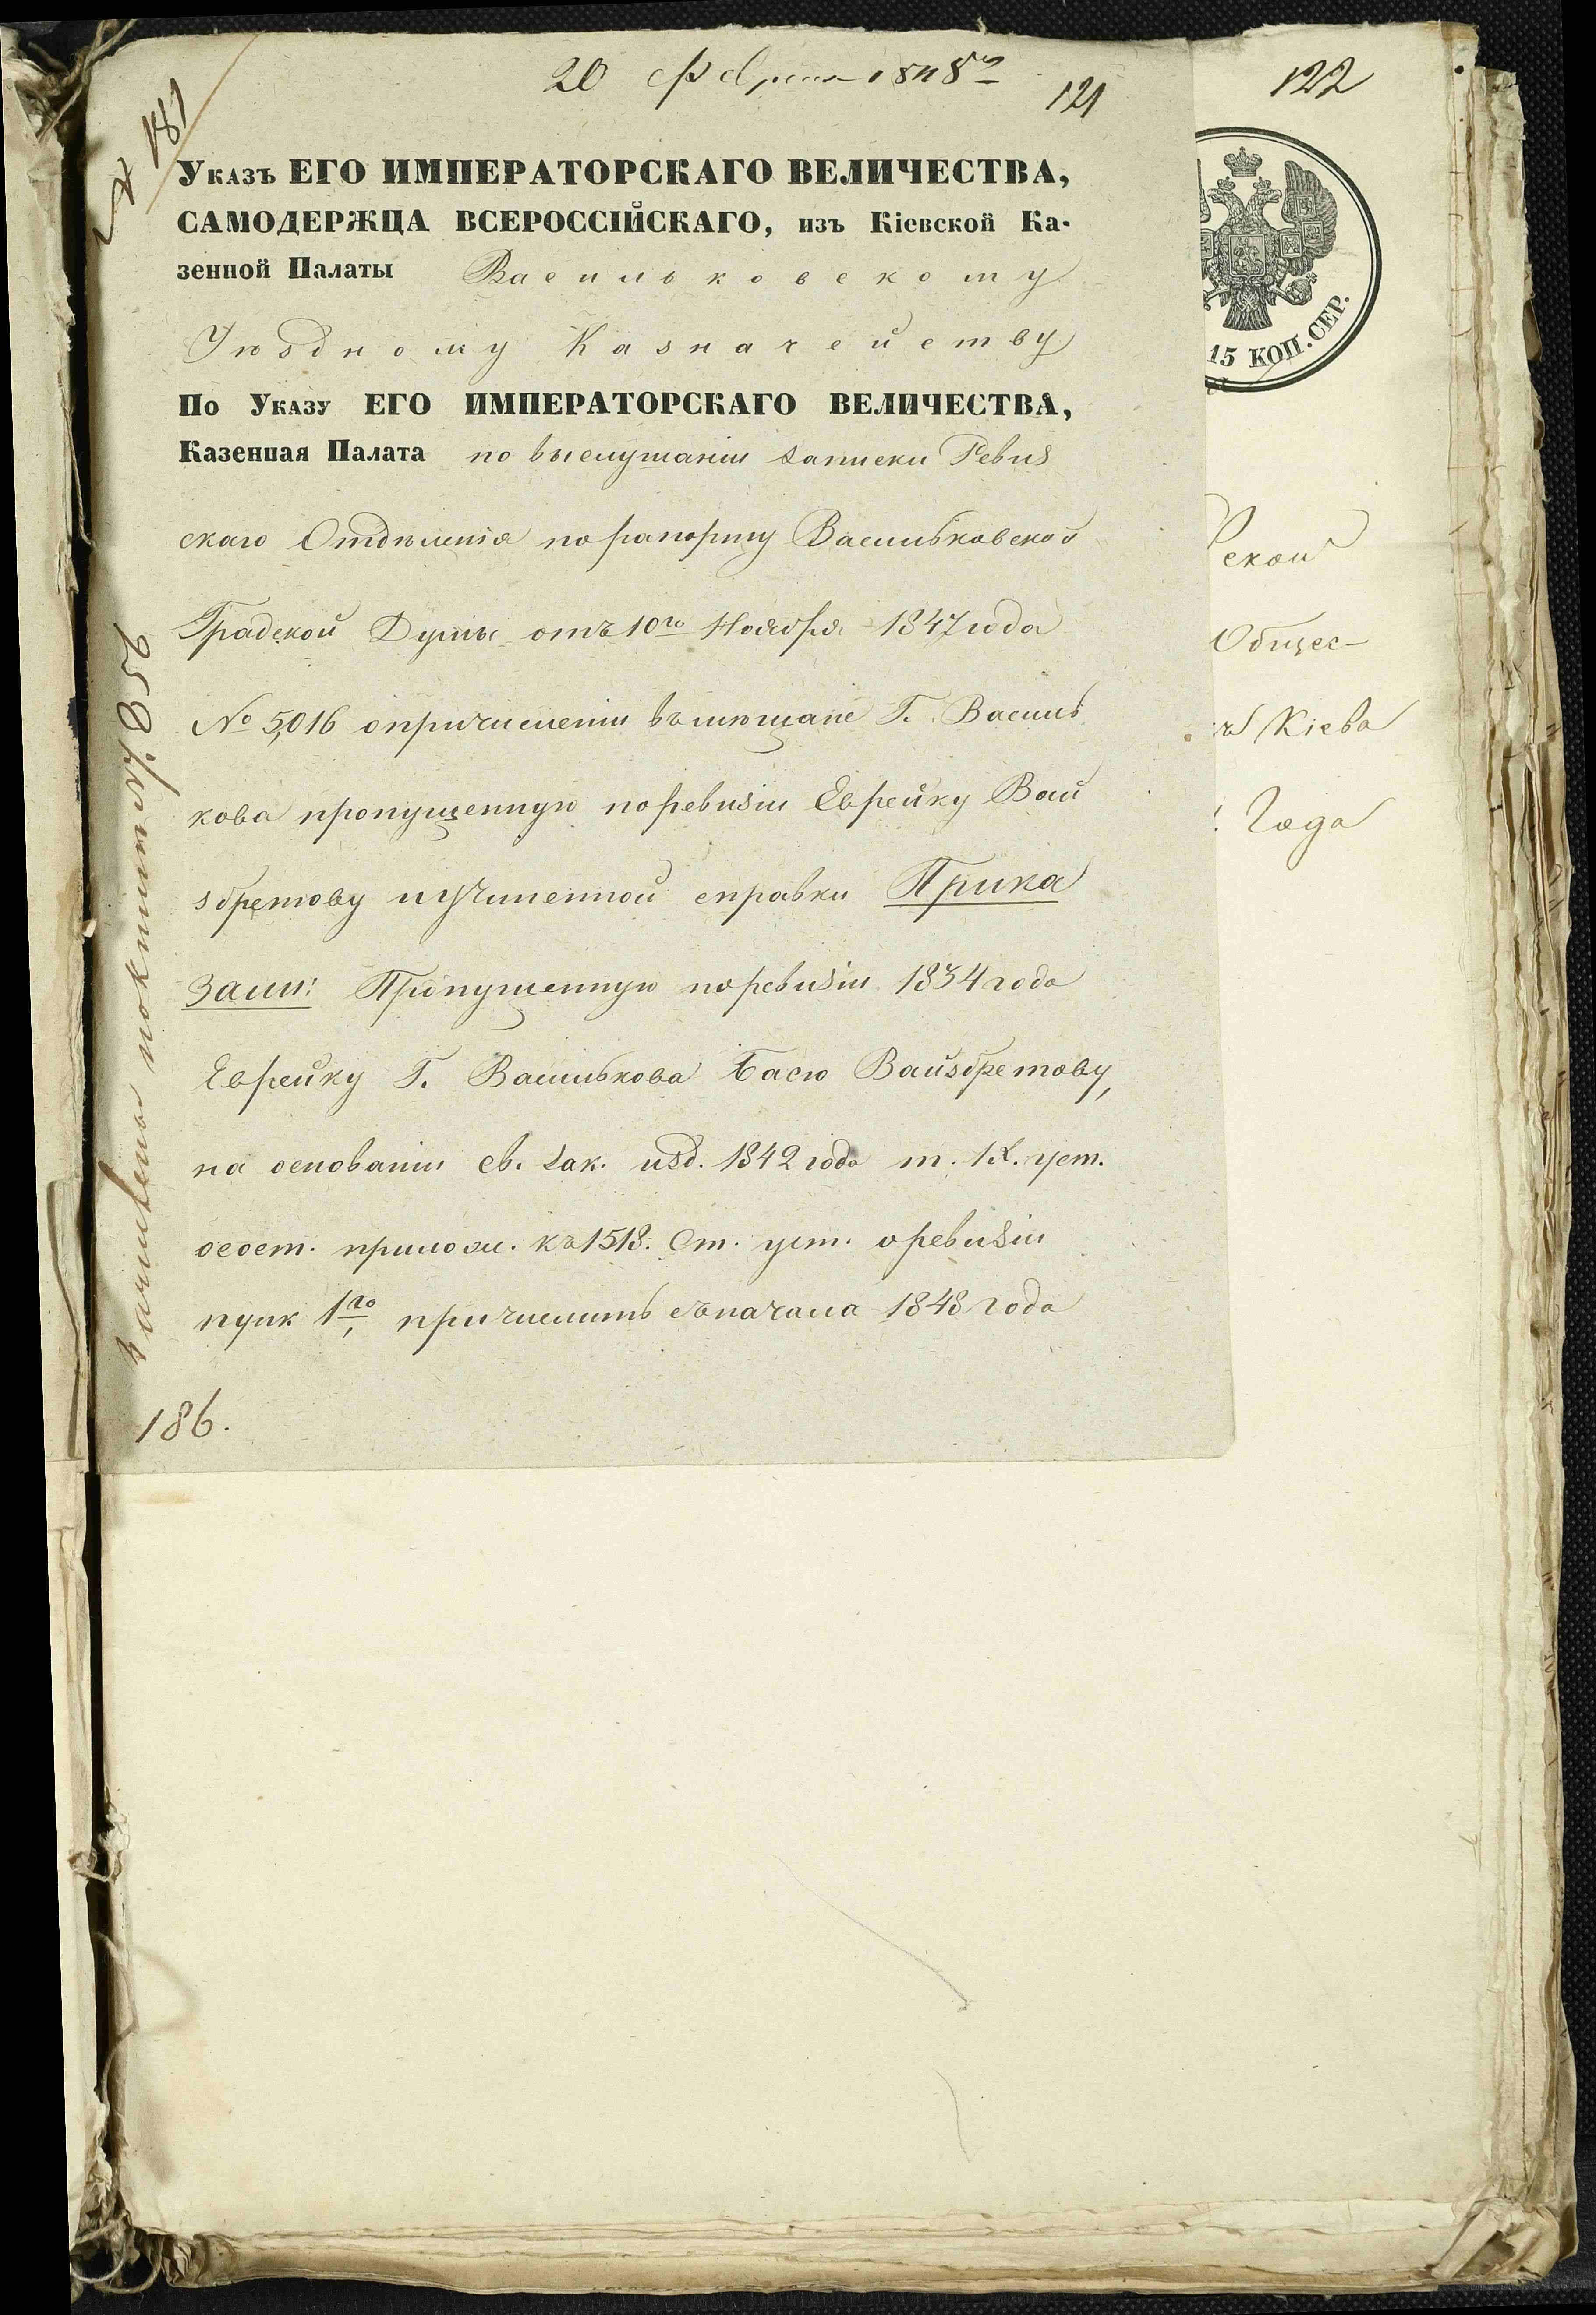 20 Февраля 1848го
121
181
Указъ ЕГО ИМПЕРАТОРСКАГО ВЕЛИЧЕСТВА,
САМОДЕРЖЦА ВСЕРОССІЙСКАГО, изъ Кіевской Ка-
зенной Палаты Васильковскому
Уѣздному Казначейству
По Указу ЕГО ИМПЕРАТОРСКАГО ВЕЛИЧЕСТВА,
Казенная Палата по выслушаніи записки Ревиз
скаго Отдѣленія по рапорту Васильковской
Градской Думы отъ 10го Ноября 1847 года
№ 5,016 опричисленіи въ мѣщане Г. Василь
кова пропущенную поревизіи Еврейку Вай
збретову и учиненной справки Прика
зали: Пропущенную поревизіи 1834 года
Еврейку Г. Василькова Басю Вайзбретову,
на основаніи св. зак. изд. 1842 года т. IX. уст.
осост. прилож. къ 1518. Ст. уст. оревизіи
пунк 1го, причислить съначала 1848 года
186.
122
15 КОП. СЕР.
ской
Общес-
Кіева
Года